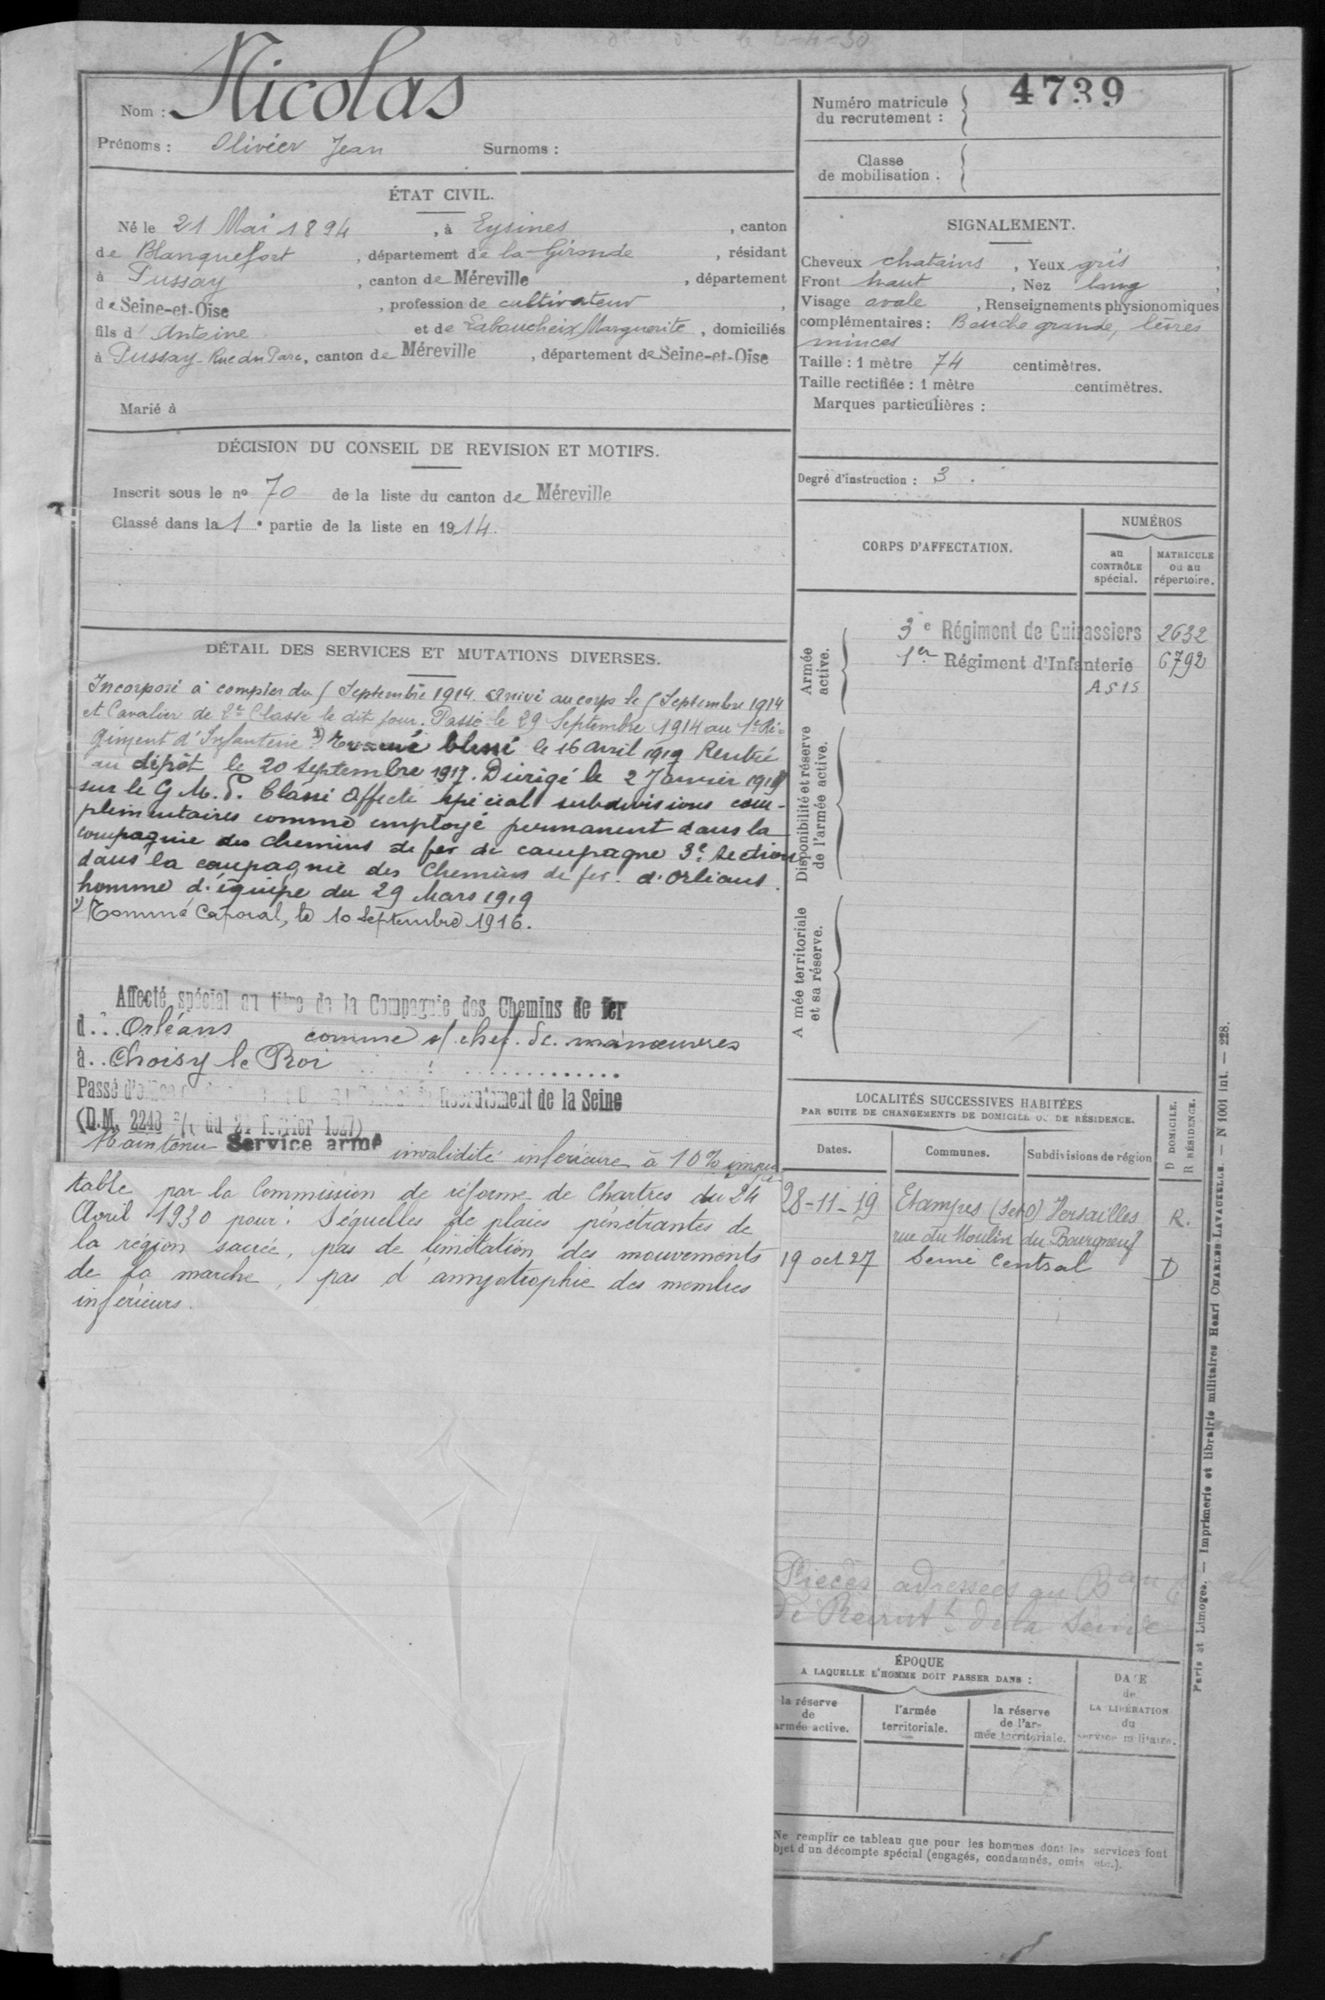 Nom : Nicolas
Prénoms : Olivier Jean Surnoms :
ÉTAT CIVIL.
Né le 21 Mai 1894, à Eysines, canton
de Blanquefort, département de la Gironde, résidant
à Pussay, canton de Méreville, département
de Seine-et-Oise, profession de cultivateur,
fils d'Antoine et de Labaucheix Marguerite, domiciliés
à Pussay - Rue du Parc, canton de Méreville, département de Seine-et-Oise
Marié à
DÉCISION DU CONSEIL DE REVISION ET MOTIFS.
Inscrit sous le nº 70 de la liste du canton de Méreville
Classé dans la 1e partie de la liste en 1914.
DÉTAIL DES SERVICES ET MUTATIONS DIVERSES.
Incorporé à compter du 5 Septembre 1914. Arrivé au corps le 5 Septembre 1914
et Cavalier de 2e Classe le dit jour. Passé le 29 Septembre 1914 au 1er Ré-
giment d'Infanterie 1) blessé le 16 avril 1917 Rentré
au dépôt le 20 septembre 1917. Dirigé le 2 Janvier 1919
sur le G.M.P. Classé Affecté spécial subdivisions com-
plémentaires comme employé permanent dans la
compagnie des chemins de fer de campagne 3e Section
dans la compagnie des Chemins de fer d'Orléans
homme d'équipe du 29 Mars 1919
1) Nommé Caporal, le 10 Septembre 1916.
Affecté spécial au titre de la Compagnie des Chemins de fer
d.. Orléans comme s/chef de manœuvres
à.. Choisy le Roi
Passé d'office Recrutement de la Seine
(D.M. 2243 du 21 février 1927)
Maintenu Service armé invalidité inférieure à 10%
table par la Commission de réforme de Chartres du 24
Avril 1930 pour : Séquelles de plaies pénétrantes de
la région sacrée, pas de limitation des mouvements
de la marche, pas d'amyotrophie des membres
inférieurs.
Numéro matricule du recrutement : 4739
Classe de mobilisation :
SIGNALEMENT.
Cheveux chatains, Yeux gris,
Front haut, Nez long,
Visage ovale, Renseignements physionomiques
complémentaires : Bouche grande, lèvres
minces
Taille : 1 mètre 74 centimètres.
Taille rectifiée : 1 mètre centimètres.
Marques particulières :
Degré d'instruction : 3.
CORPS D'AFFECTATION.
NUMÉROS
au CONTRÔLE spécial.
MATRICULE ou au répertoire.
Armée active.
3e Régiment de Cuirassiers 2632
1er Régiment d'Infanterie 6792
A 515
Disponibilité et réserve de l'armée active.
A mée territoriale et sa réserve.
LOCALITÉS SUCCESSIVES HABITÉES
PAR SUITE DE CHANGEMENTS DE DOMICILE OU DE RÉSIDENCE.
D DOMICILE.
R RÉSIDENCE.
Dates. Communes. Subdivisions de région
28-11-19 Etampes (S et O) Versailles R.
rue du Moulin du Bourgneuf
19 oct 27 Seine Central D
Pièces adressées au
de Recrutt de la Seine
ÉPOQUE
A LAQUELLE L'HOMME DOIT PASSER DANS :
la réserve de armée active.
l'armée territoriale.
la réserve de l'armée territoriale.
DATE de LA LIBÉRATION du service militaire.
Ne remplir ce tableau que pour les hommes dont les services font
bjet d'un décompte spécial (engagés, condamnés, omis etc.).
Paris et Limoges. — Imprimerie et librairie militaires Henri CHARLES-LAVAUZELLE. — N 1001 int. — 228.